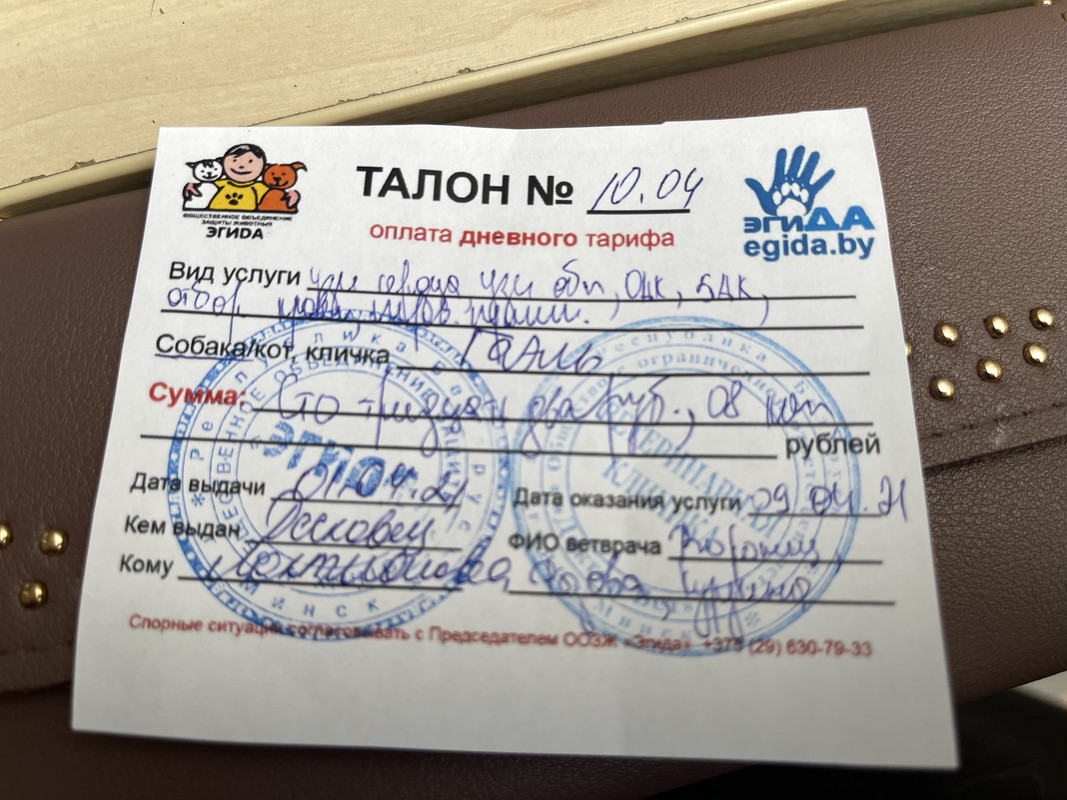 ОБЩЕСТВЕННОЕ ОБЪЕДИНЕНИЕ
ЗАЩИТЫ ЖИВОТНЫХ
ЭГИDА
ТАЛОН № 10.04
оплата дневного тарифа
эгиДА
egida.by
Вид услуги узи сердца узи обп, ОАК, БАК,
отбор крови,
Собака/кот, кличка Гааль
Сумма: Сто тридцать два руб., 08 коп
рублей
Дата выдачи 01.04.21
Дата оказания услуги 09.04.21
Кем выдан
ФИО ветврача
Кому
Спорные ситуации согласовывать с Председателем ООЗЖ «Эгида» +375 (29) 630-79-33
ЭГИDА
МИНСК
ВЕТЕРИНАРНАЯ
КЛИНИКА